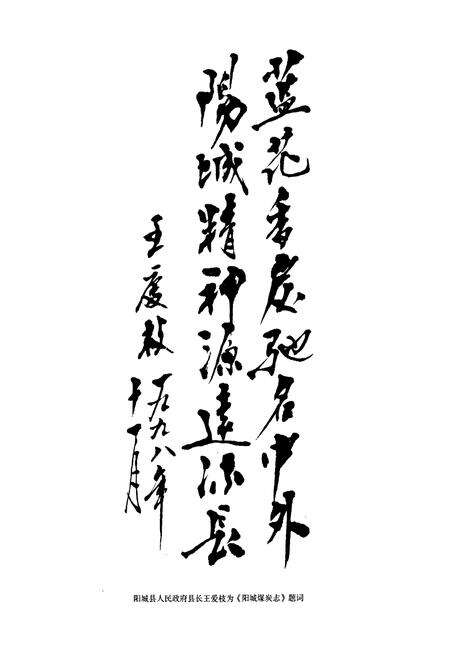 蘭花香炭驰名中外
陽城精神源遠流長
王愛枝
一九九八年
十一月
阳城县人民政府县长王爱枝为《阳城煤炭志》题词